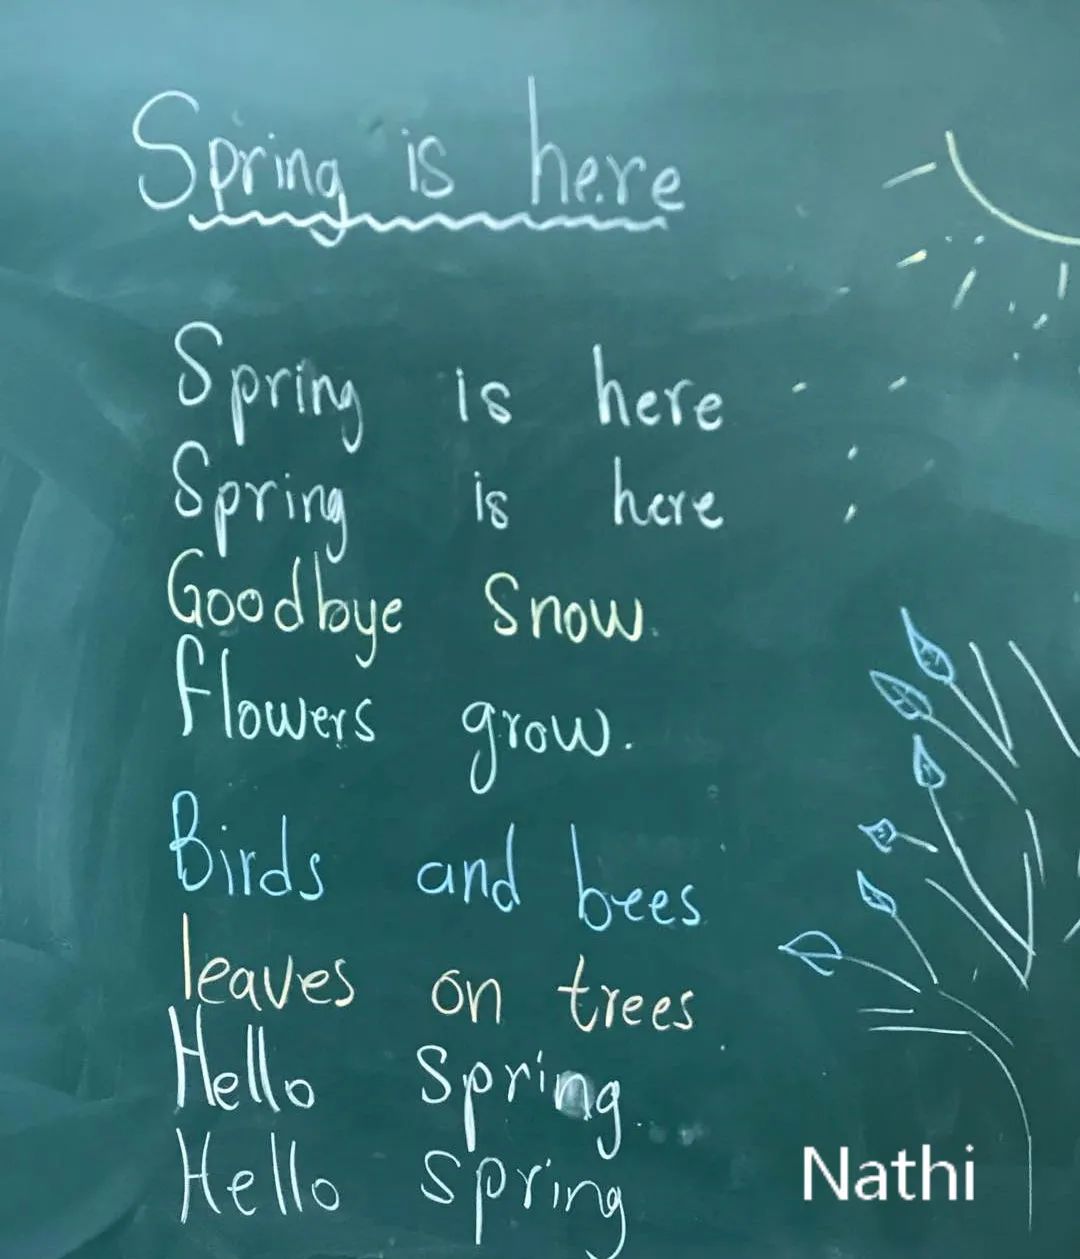 Spring is here
Spring is here
Spring is here
Goodbye Snow.
flowers grow.
Birds and bees
leaves on trees
Hello Spring
Hello Spring
Nathi